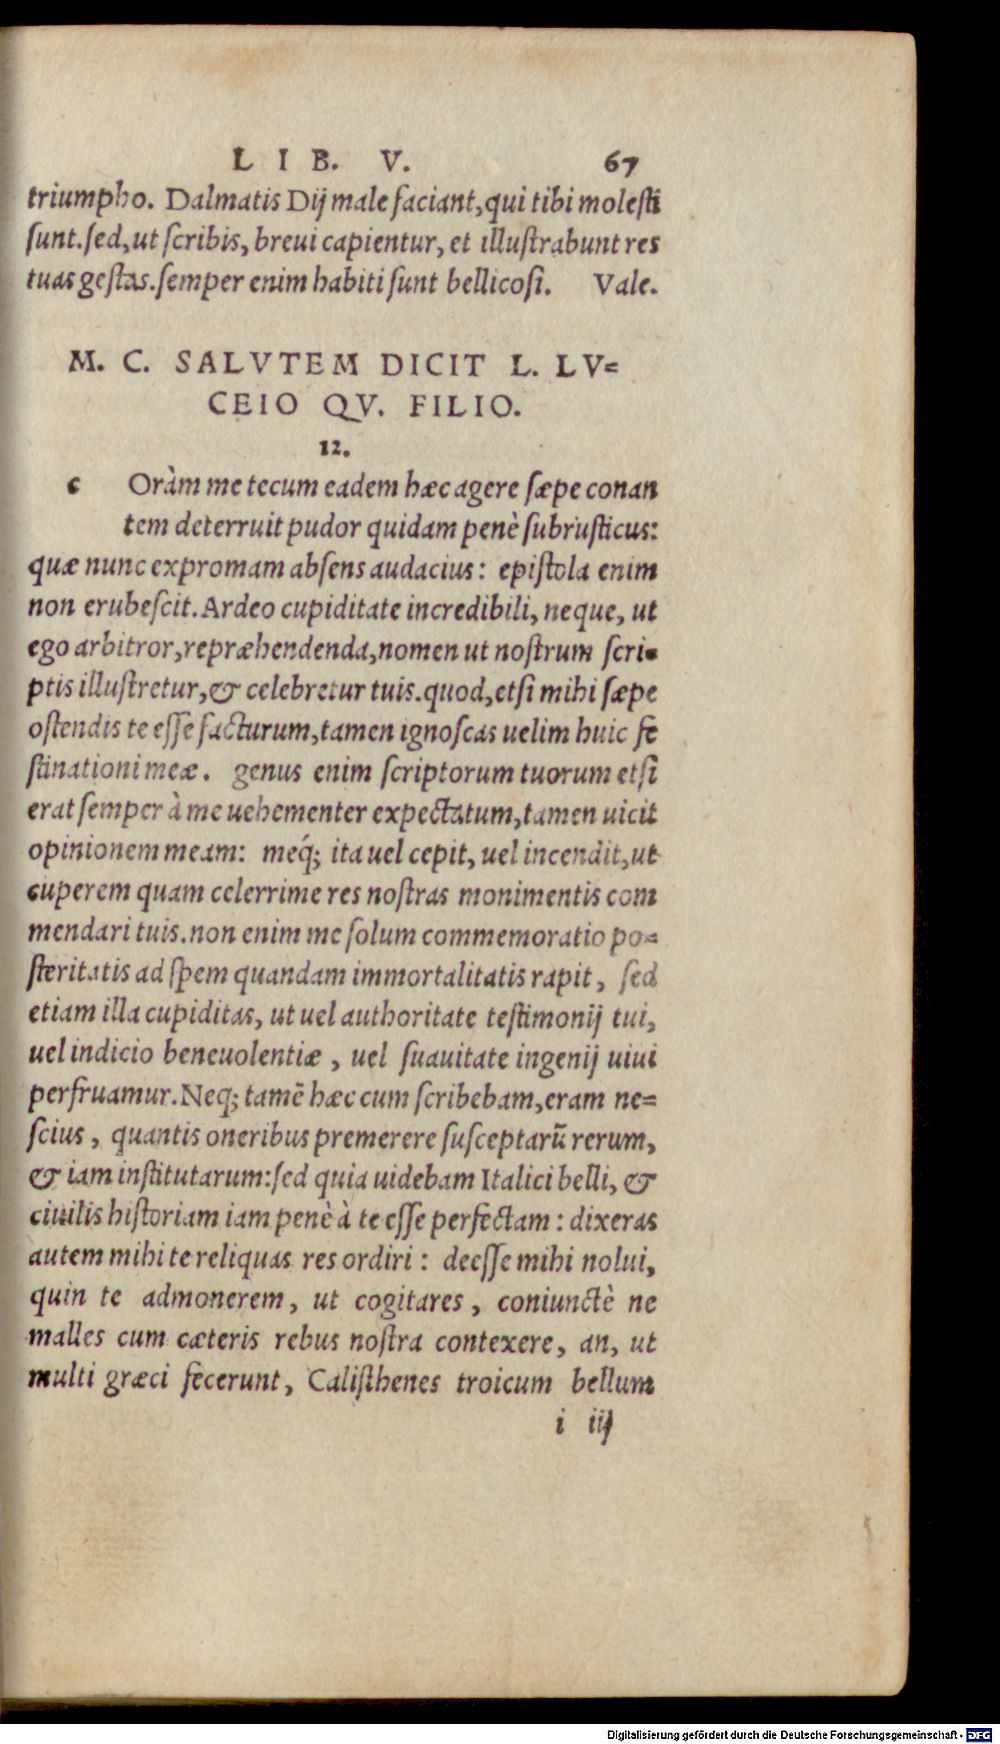 LIB. V. 67
triumpho. Dalmatis Dij male faciant, qui tibi molesti
ſunt. ſed, ut ſcribis, breui capientur, et illuſtrabunt res
tuas geſtas. ſemper enim habiti ſunt bellicoſi. Vale.
M. C. SALVTEM DICIT L. LV=
CEIO QV. FILIO.
12.
c Oràm me tecum eadem hæc agere ſæpe conan
tem deterruit pudor quidam penè ſubruſticus:
quæ nunc expromam abſens audacius: epiſtola enim
non erubeſcit. Ardeo cupiditate incredibili, neque, ut
ego arbitror, repræhendenda, nomen ut noſtrum ſcri-
ptis illuſtretur, & celebretur tuis. quod, etſi mihi ſæpe
oſtendis te eſſe facturum, tamen ignoſcas uelim huic fe
ſtinationi meæ. genus enim ſcriptorum tuorum etſi
erat ſemper à me uehementer expectatum, tamen uicit
opinionem meam: meq́; ita uel cepit, uel incendit, ut
cuperem quam celerrime res noſtras monimentis com
mendari tuis. non enim me ſolum commemoratio po=
ſteritatis ad ſpem quandam immortalitatis rapit, ſed
etiam illa cupiditas, ut uel authoritate teſtimonij tui,
uel indicio beneuolentiæ, uel ſuauitate ingenij uiui
perfruamur. Neq; tamẽ hæc cum ſcribebam, eram ne=
ſcius, quantis oneribus premerere ſuſceptarũ rerum,
& iam inſtitutarum: ſed quia uidebam Italici belli, &
ciuilis hiſtoriam iam penè à te eſſe perfectam: dixeras
autem mihi te reliquas res ordiri: deeſſe mihi nolui,
quin te admonerem, ut cogitares, coniunctè ne
malles cum cæteris rebus noſtra contexere, an, ut
multi græci fecerunt, Caliſthenes troicum bellum
i iij
Digitalisierung gefördert durch die Deutsche Forschungsgemeinschaft - DFG